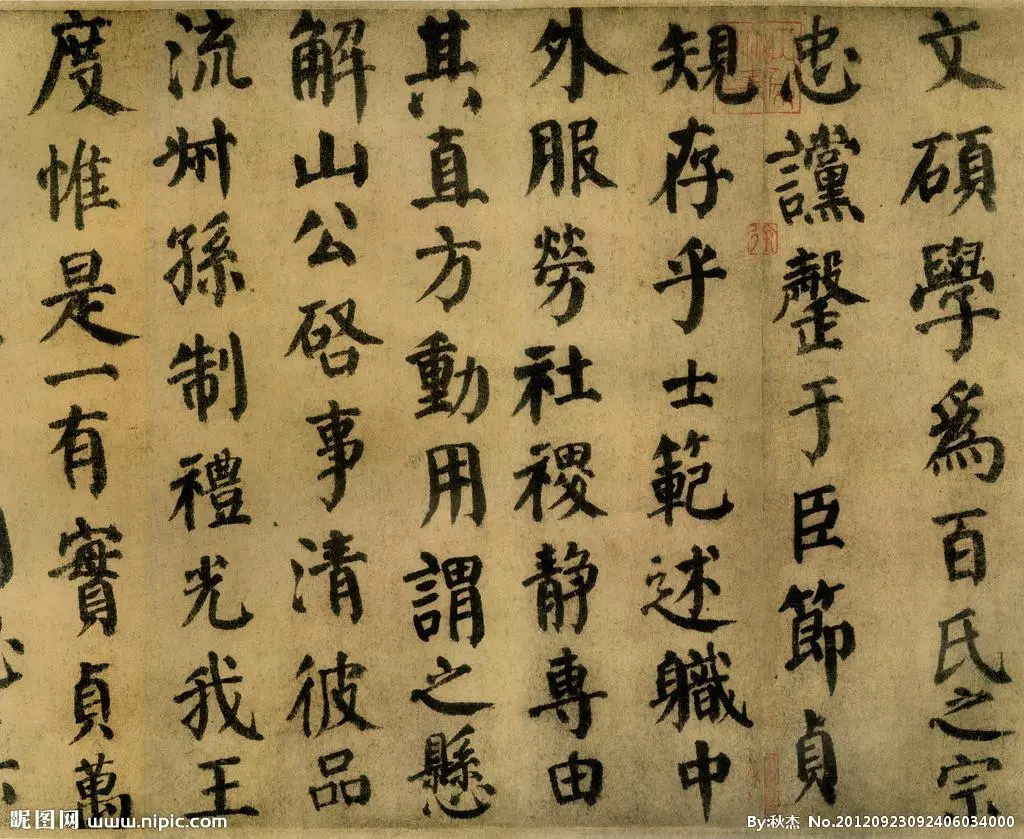 文碩學爲百氏之宗
忠讜罄于臣節貞
規存乎士範述職中
外服勞社稷静專由
其直方動用謂之懸
解山公啓事清彼品
流叔孫制禮光我王
度惟是一有實貞萬
昵图网 www.nipic.com
By:秋杰 No.20120923092406034000